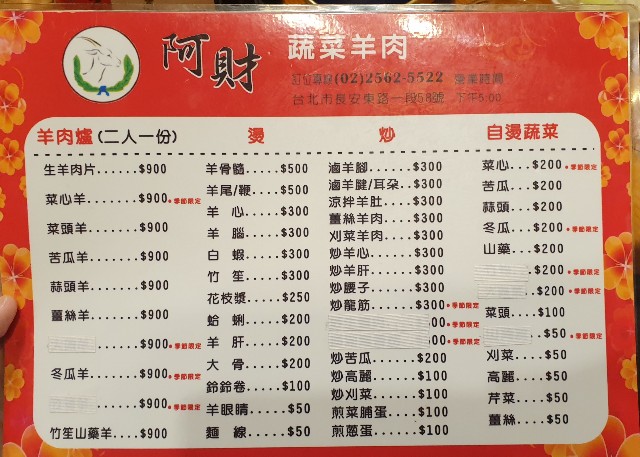 阿財 蔬菜羊肉
訂位專線(02)2562-5522 營業時間
台北市長安東路一段58號 下午5:00
羊肉爐(二人一份)
生羊肉片......$900
菜心羊........$900•季節限定
菜頭羊........$900
苦瓜羊........$900
蒜頭羊........$900
薑絲羊........$900
........$900•季節限定
冬瓜羊........$900•季節限定
........$900•季節限定
竹笙山藥羊....$900
燙
羊骨髓.....$500
羊尾/鞭....$500
羊 心.....$300
羊 腦.....$300
白 蝦.....$300
竹 笙.....$300
花枝漿.....$250
蛤 蜊.....$200
羊 肝.....$200
大 骨.....$200
鈴鈴卷.....$100
羊眼睛.....$50
麵 線.....$50
炒
滷羊腳......$300
滷羊腱/耳朵..$300
涼拌羊肚....$300
薑絲羊肉....$300
刈菜羊肉....$300
炒羊心......$300
炒羊肝......$300
炒腰子......$300
炒龍筋......$300•季節限定
00•季節限定
00•季節限定
炒苦瓜......$200
炒高麗......$100
炒刈菜......$100
煎菜脯蛋....$100
煎蔥蛋......$100
自燙蔬菜
菜心...$200•季節限定
苦瓜...$200
蒜頭...$200
冬瓜...$200•季節限定
山藥...$200
.$200•季節限定
.$200•季節限定
菜頭...$100
.$50•季節限定
刈菜....$50
高麗....$50
芹菜....$50
薑絲....$50